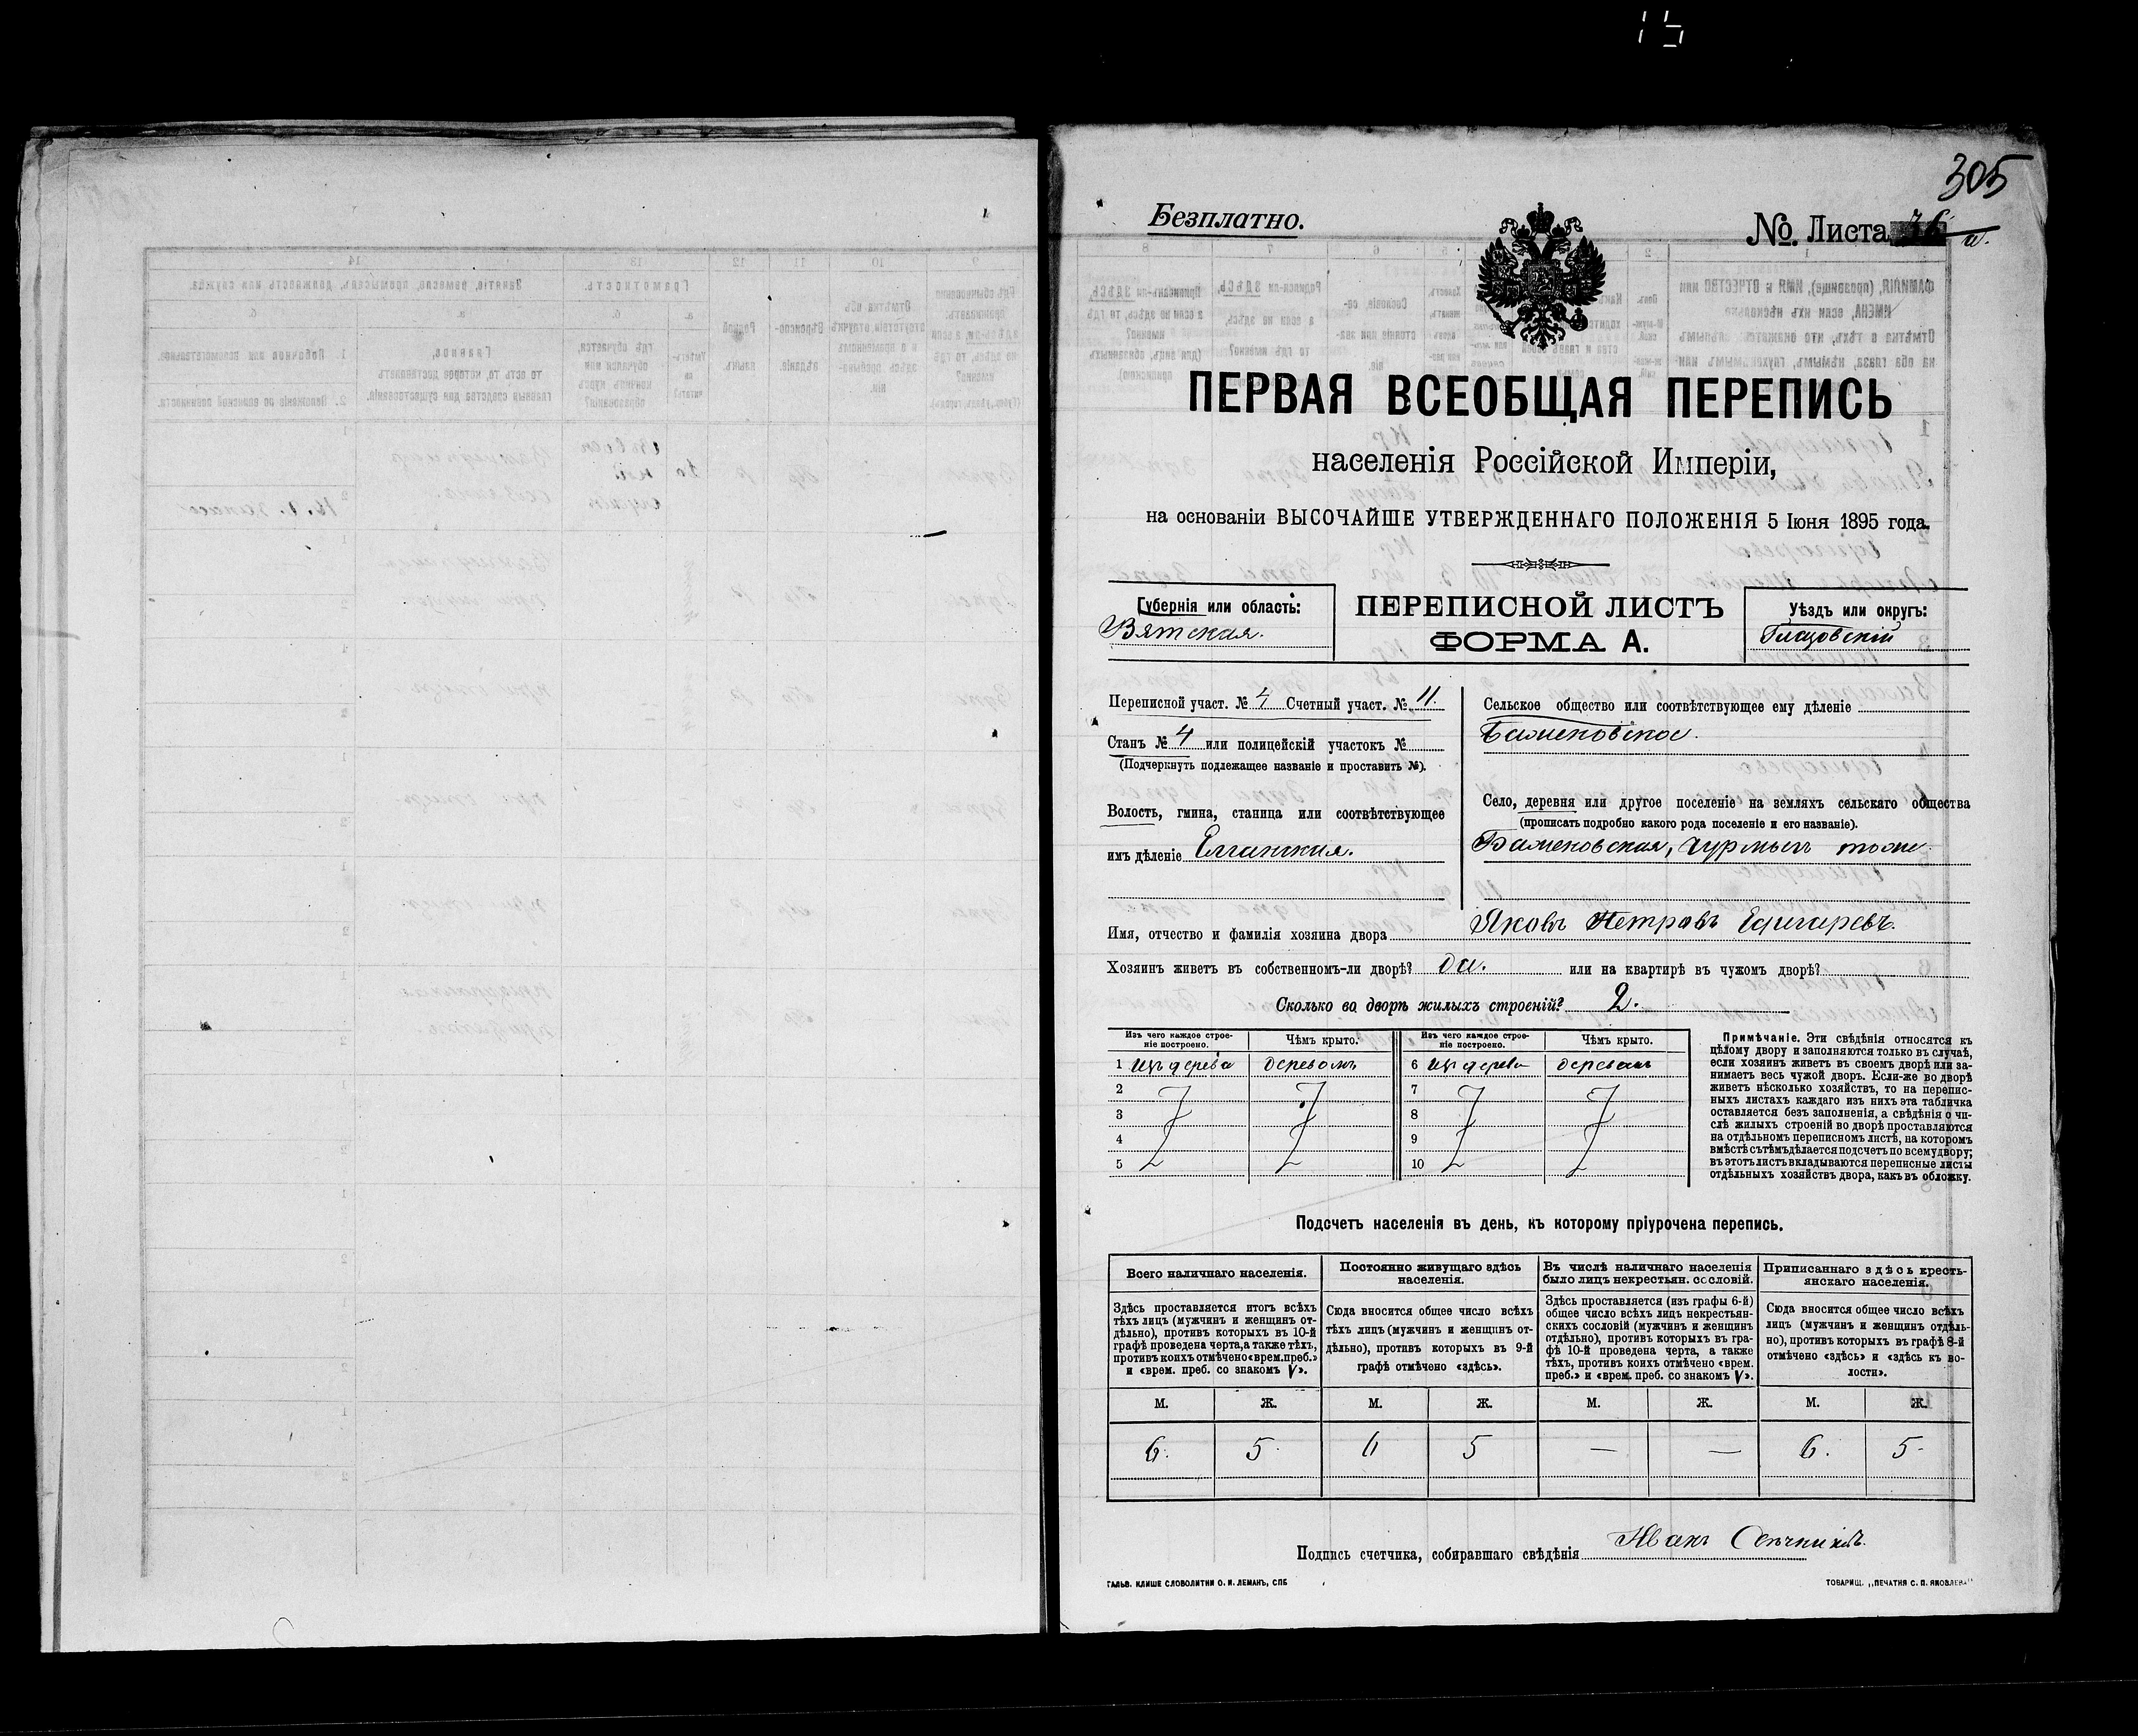 305
Безплатно.
№. Листа 36 а.
ПЕРВАЯ ВСЕОБЩАЯ ПЕРЕПИСЬ
населенія Россійской Имперіи,
на основаніи ВЫСОЧАЙШЕ УТВЕРЖДЕННАГО ПОЛОЖЕНІЯ 5 Іюня 1895 года.
Губернія или область:
Вятская.
ПЕРЕПИСНОЙ ЛИСТЪ
ФОРМА А.
Уѣздъ или округъ:
Глазовскій
Переписной участ. № 4 Счетный участ. № 11.
Станъ № 4 или полицейскій участокъ №
(Подчеркнуть подлежащее названіе и проставить №).
Волость, гмина, станица или соотвѣтствующее
имъ дѣленіе Елганская.
Сельское общество или соотвѣтствующее ему дѣленіе
Село, деревня или другое поселеніе на земляхъ сельскаго общества
(прописать подробно какого рода поселеніе и его названіе).
Имя, отчество и фамилія хозяина двора Яковъ Петровъ
Хозяинъ живетъ въ собственномъ-ли дворѣ? да. или на квартирѣ въ чужомъ дворѣ?
Сколько во дворѣ жилыхъ строеній? 2.
Изъ чего каждое строе-
ніе построено.
Чѣмъ крыто.
Изъ чего каждое строе-
ніе построено.
Чѣмъ крыто.
1 изъ дерева деревомъ 6 изъ дерева деревомъ
2 7
3 8
4 9
5 10
Примѣчаніе. Эти свѣдѣнія относятся къ
цѣлому двору и заполняются только въ случаѣ,
если хозяинъ живетъ въ своемъ дворѣ или за-
нимаетъ весь чужой дворъ. Если-же во дворѣ
живетъ нѣсколько хозяйствъ, то на перепис-
ныхъ листахъ каждаго изъ нихъ эта табличка
оставляется безъ заполненія, а свѣдѣнія о чи-
слѣ жилыхъ строеній во дворѣ проставляются
на отдѣльномъ переписномъ листѣ, на которомъ
вмѣстѣ съ тѣмъ дѣлается подсчетъ по всему двору;
въ этотъ листъ вкладываются переписные листы
отдѣльныхъ хозяйствъ двора, какъ въ обложку.
Подсчетъ населенія въ день, къ которому пріурочена перепись.
Всего наличнаго населенія.
Здѣсь проставляется итогъ всѣхъ
тѣхъ лицъ (мужчинъ и женщинъ от-
дѣльно), противъ которыхъ въ 10-й
графѣ проведена черта, а также тѣхъ,
противъ коихъ отмѣчено «врем. преб.»
и «врем. преб. со знакомъ V».
Постоянно живущаго здѣсь
населенія.
Сюда вносится общее число всѣхъ
тѣхъ лицъ (мужчинъ и женщинъ от-
дѣльно), противъ которыхъ въ 9-й
графѣ отмѣчено «здѣсь».
Въ числѣ наличнаго населенія
было лицъ некрестьян. сословій.
Здѣсь проставляется (изъ графы 6-й)
общее число всѣхъ лицъ некрестьян-
скихъ сословій (мужчинъ и женщинъ
отдѣльно), противъ которыхъ въ гра-
фѣ 10-й проведена черта, а также
тѣхъ, противъ коихъ отмѣчено «врем.
преб.» и «врем. преб. со знакомъ V».
Приписаннаго здѣсь кресть-
янскаго населенія.
Сюда вносится общее число всѣхъ
лицъ (мужчинъ и женщинъ отдѣль-
но), противъ которыхъ въ графѣ 8-й
отмѣчено «здѣсь» и «здѣсь къ во-
лости».
М. Ж. М. Ж. М. Ж. М. Ж.
6. 5. 6 5 — — 6. 5.
Подпись счетчика, собиравшаго свѣдѣнія Иванъ
ГАЛЬВ. КЛИШЕ СЛОВОЛИТНИ О. И. ЛЕМАНЪ, СПБ
ТОВАРИЩ. „ПЕЧАТНЯ С. П. ЯКОВЛЕВА"